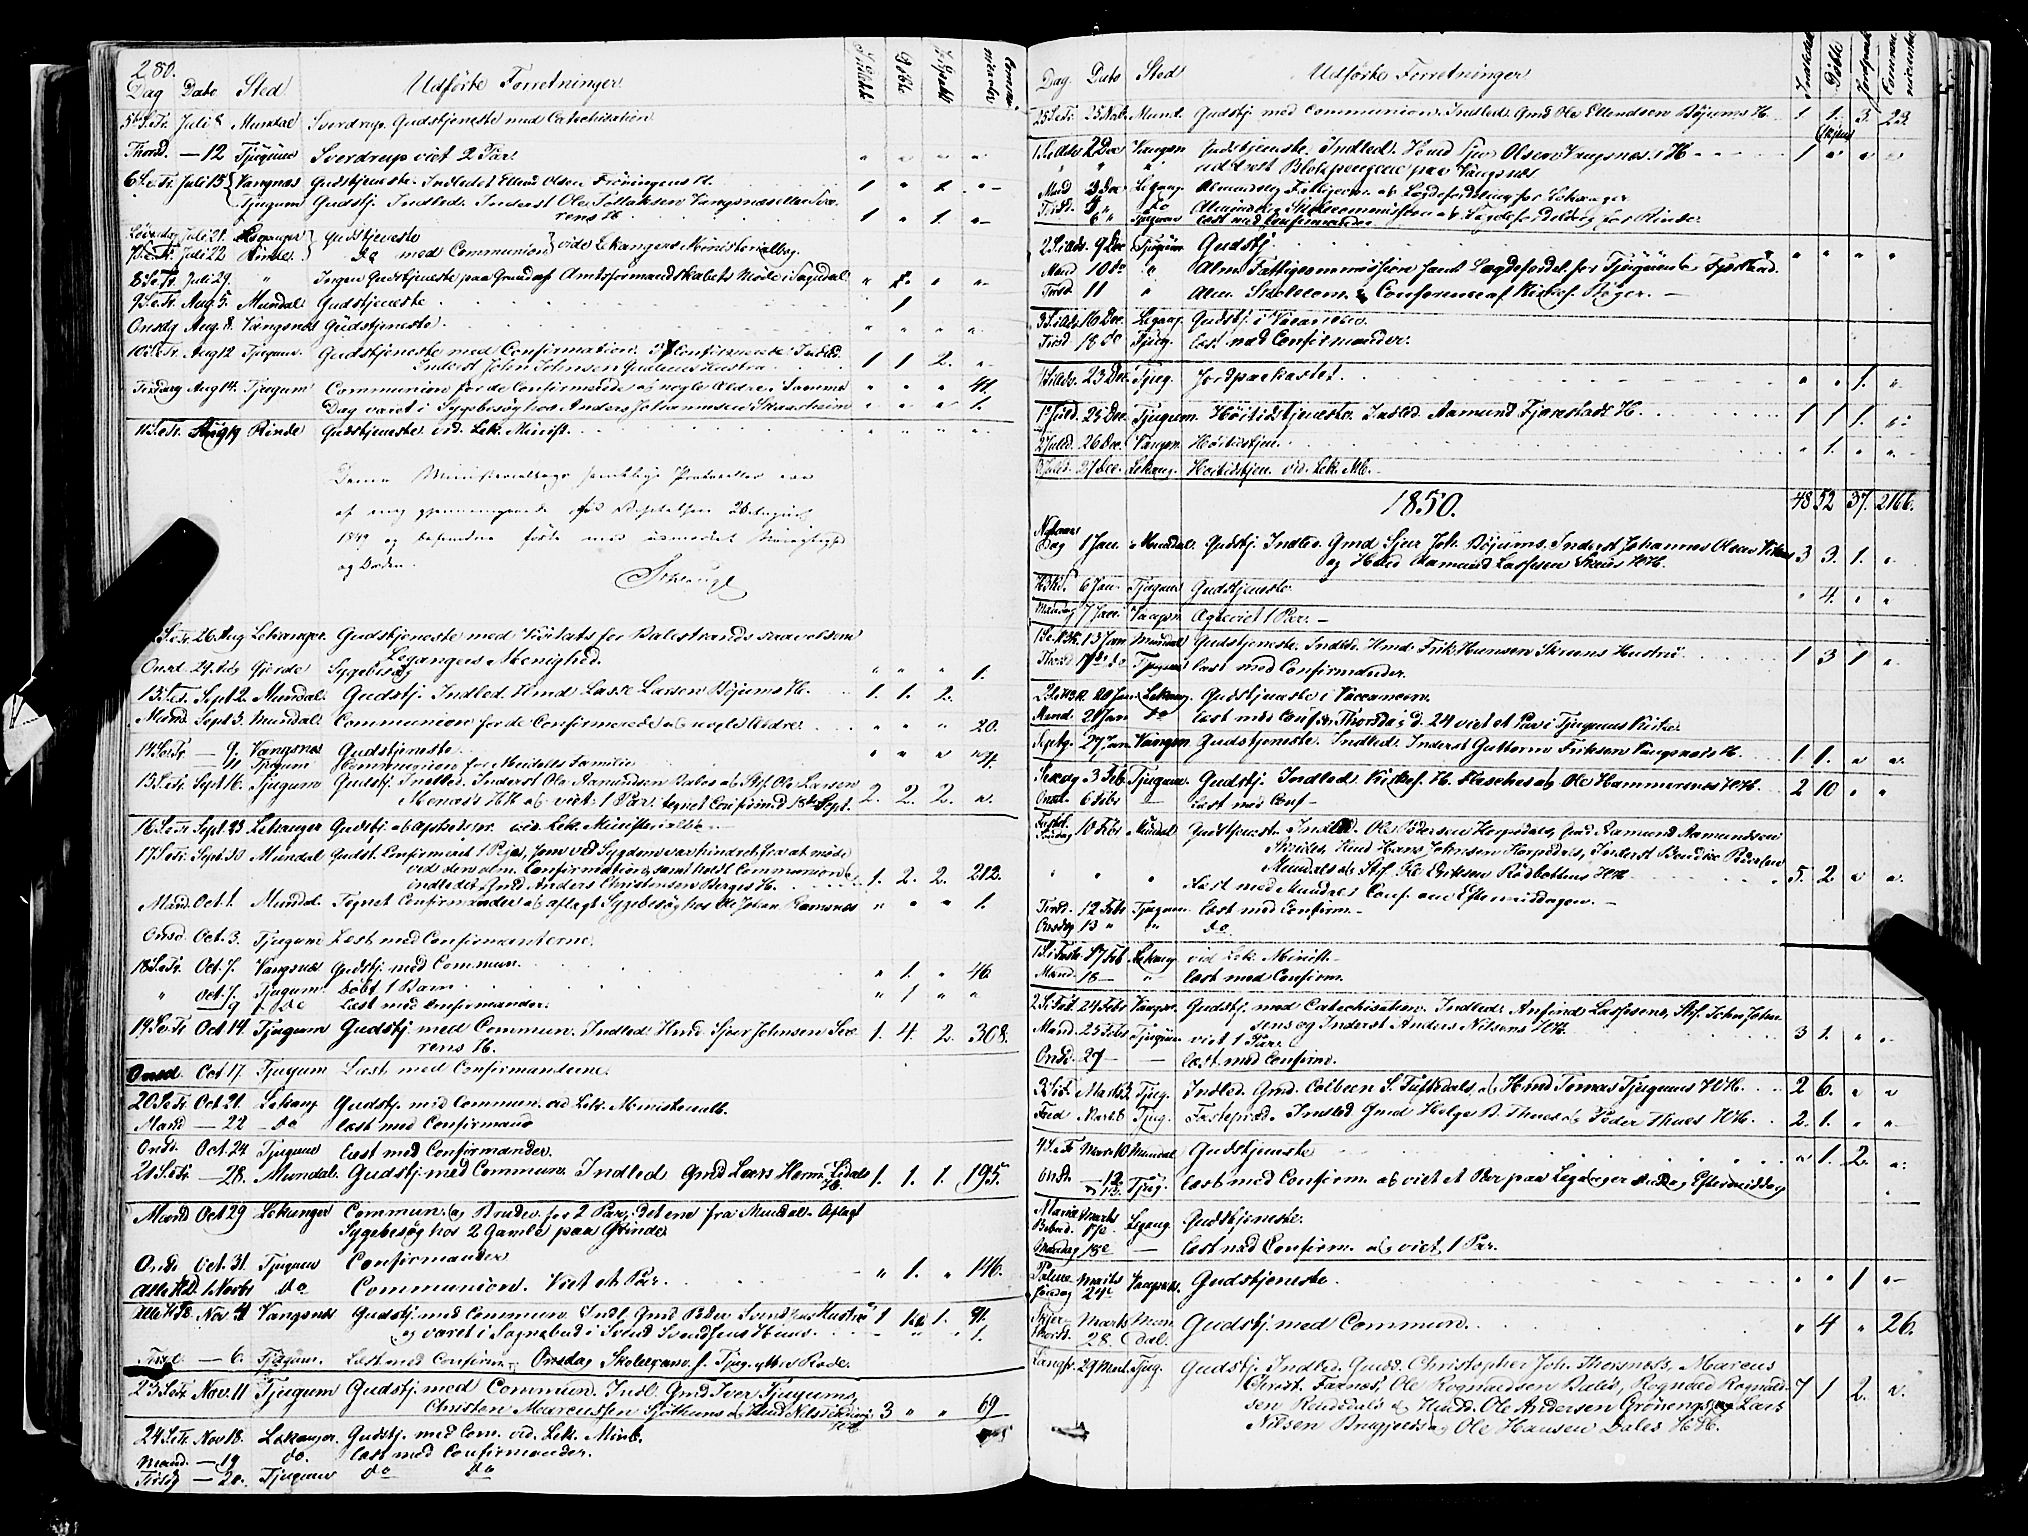 280.
Dag Dato Sted Udførte Forretninger Indledte Døbte Jordpaak. Communicanter
5 S.e.Tr. Juli 8 Mundal Sverdrup. Gudstjeneste med Catechisation
Thorsd. — 12 Tjugum Sverdrup viet 2 Par.
6 S.e.Tr. Juli 15 Vangsnes Gudstjeneste. Indledet Ellend Olsen Frøningens H. 1 " 1 "
Tjugum Gudstj. Indled. Inderst Ole Vangsnæs
rens H. 1 " 1 "
Løverdag Juli 21. Leganger Gudstjeneste
7 S.e.Tr. Juli 22 Rinde do med Communion vide Lekangers Ministerialbog.
8 S.e.Tr. Juli 29 " Ingen Gudstjeneste paa Grund af Amtsformandskabets Møde i Sogndal " 2 " "
9 S.e.Tr. Aug. 5. Mundal Gudstjeneste 1
Onsdg Aug. 8. Vangsnes Gudstjeneste. " " " "
10 S.e.Tr. Aug 12 Tjugum Gudstjeneste med Confirmation. 37 Confirmerede. Indled.
Inderst John Johnsen Hustru 1 1 2. "
Tirsdag Aug 14. Tjugum Communion for de Confirmerede og nogle Ældre. Samme " " " 41.
Dag været i Sygebesøg hos Anders Johannessen " " " 1.
11 S.e.Tr. Aug 19 Rinde Gudstjeneste vid. Lek. Minist. " " " "
Denne Ministerialbogs samtlige Protocoller ere
af mig gjennemgaaede paa Visitatsen 26 August
1849 og befundne førte med Nøiagtighed
og Orden.
S.e.Tr. 26 Aug Lekanger Gudstjeneste med Visitats for Balestrands saavelsom
Legangers Menighed.
Onsd. 29. Aug Gjerde Sygebesøg " " " 1.
13 S.e.Tr. Sept 2. Mundal. Gudstj. Indled. Hmd Lasse Larsen Bøjums H. 1. 1. 2.
Mand. Sept 3. Mundal. Communion for de Confirmerede og nogle Ældre. " " " 20.
14 S.e.Tr. — 9. Vangsnes Gudstjeneste. " " " "
— 11 Tjugum Communion for Meidells Familie " 4.
15 S.e.Tr. Sept 16. Tjugum Gudstj. Indled. Inderst Ole Aamundsen Bales og Stf. Ole Larsen
Menes's HH og viet 1 Par. tegnet Confirmd 18de Sept. 2. 2. 2. "
16 S.e.Tr Sept. 23 Lekanger Gudstj. vid. Lek. Ministerialb.
17 S.e.Tr. Sept. 30 Mundal Gudst. Confirmeret 1 Pige, som ved Sygdom var hindret fra at møde
ved den alm. Confirmation, samt holdt Communion
indledet Gmd Anders Christensen Berges H. 1. 2. 2. 212.
Mand. Oct. 1. Mundal. Tegnet Confirmander og aflagt Sygebesøg hos Ole Johan. Ramsnæs " " " 1.
Onsd Oct. 3. Tjugum Læst med Confirmanterne.
18 S.e.Tr. Oct. 7. Vangsnes Gudstj. med Commun. " 1. " 46.
" Oct. 7. Tjugum. døbt 1 Barn " 1 " "
— 9 do Læst med Confirmander.
19 S.e.Tr Oct 14. Tjugum Gudstj. med Commun. Indled. Hmd. Sjur Johnsen Sve
rens H. 1. 4. 2. 308.
Onsd. Oct 17. Tjugum Læst med Confirmanderne.
20 S.e.Tr Oct 21. Lekang Gudstj. med Commun. vid Lek. Ministerialb.
Mand — 22 do læst med Confirmand
Onsd. Oct. 24 Tjugum læst med Confirmander.
21 S.e.Tr. — 28. Mundal. Gudstj. med Commun. Indled Gmd Lars Herm. Lidals
H. 1. 1. 1. 195.
Mand Oct 29 Lekanger Commun. og Bruden for 2 Par, det ene fra Mundal. Aflagt
Sygebesøg hos 2 Gamle paa Grinde
Onsd. Oct. 31. Tjugum Confirmander
Alle Hl. D. 1 Novbr do Communion. Viet et Par. " 1. " 146.
Alle H. S. Nov 4 Vangsnes Gudstj. med Commun. Indl. Gmd Peder Svendsens Hustru 1 10 1. 91.
og været i Sognebud i Svend Svendsens Huus. " " " 1.
Tirsd — 6. Tjugum. Læst med Confirm. — Onsdag Skoleexam. f. Tjug. yttre Rode.
23 S.e.Tr. Nov. 11 Tjugum Gudstj. med Commun. Indl. Gmd Iver Tjugums,
Christen Marcussen Sjøthuns og Hmd Nils 3 " " 69
24 S.e.Tr. Nov 18. Lekanger Gudstj. med Com. vid. Lek. Minb.
Mand. — 19 do. læst med Confirmander.
Tirsdg — 20. Tjugum do do
Dag. Dato Sted Udførte Forretninger Indledede Døbte Jordpaak. Communicanter
25 S.e.Tr. 25 Nov. Mund. Gudstj. med Communion. Indled. Gmd Ole Ellendsen Bøjums H. 1 1. 3. 23
1 S. i Adv. 2 Dec Vangsn Gudstjeneste. Indled. Hmd Sjur Olsen Vangsnes. H 1 " " "
" " " udlæst Blokpengene paa Vangsnæs
Mand 3 Dec Legang. Almindelig Fattigcom. og Lægdefordeling for Lekanger
Tirsd. 4 " do Alminding Skolecommission og Lægdefordeling for Rinde.
6 " Tjugum læst med Confirmander.
2 S. i Adv. 9 Dec Tjugum Gudstj. " " " "
Mand 10 do " Alm. Fattigcommission samt Lægdefordel. for Tjugum og Fjærland.
Tirsd. 11 " Alm. Skolecom. & Conference af Kirkes. Bøger. —
3 S. i Adv. 16 Dec. Legang. Gudstj. i Vacancen.
Tirsd 18 do Tjug. læst med Confirmander.
4 S. i Adv. 23 Dec. Tjug. Jordpaakastet. " " 1. "
1ste Juled. 25 Dec. Tjugum. Høitidstjeneste. Indled. Aamund Fjærestads H. 1 1 1. "
2 Juled. 26 Dec. Vangsn. Høitidstjen. " 1. " "
3 Juled. 27 Dec. Lekang. Høitidstjen. vid. Lek. Mb.
1850. 48 52 37. 2166.
Nytaars
Dag 1 Jan. Mundal. Gudstj. Indled. Gmd Sjur Joh. Bøjums, Inderst Johannes Olsen
og Hmd Aamund Lassesen HH. 3 3. 1. "
H. 3 K. 6 Jan. Tjugum Gudstjeneste. " 4. " "
Mandag 7 Jan. Vangsn. Ægteviet 1 Par. —
1 S.e.H.3K. 13 Jan Mundal Gudstjeneste. Indled. Hmd. Erik Hansen Skeans Hustru 1 3 1 "
Thorsd 17 do Tjugum læst med Confirmander.
2 S.e.H.3K. 20 Jan Lekang Gudstjeneste i Vacancen.
Mand. 21 Jan do læst med Conf. Thorsdag d. 24 viet et Par i Tjugums Kirke.
Septg. 27 Jan. Vangsn Gudstjeneste. Indled: Inderst Guttorm Eriksen Vangsnæs H. 1 1. " "
Sexag 3 Feb. Tjugum. Gudstj. Indled. Kirkes. H. og Ole Hammerens HH. 2 10 " "
Onsd. 6 Febr — læst med Conf —
Fastel.
Søndag 10 Febr Mundal Gudstjenest. Indled. Ole Pedersen Horpedals, Gmd Aamund Aamundsen
Skeides, Hmd Hans Johnsen Horpedals, Inderst Bendix
Mundals og Stf. Ole Eriksen Rødbottens HH. 5. 2 " "
" " " Læst med Mundals Conf. om Eftermiddagen. —
Tirsd. 12 Febr Tjugum læst med Confirm. —
Onsdag 13 " do do.
1 S. i Faste 17 Feb Lekang vid Lek. Minist. —
Mand. 18 — " læst med Confirm.
2 S. i Fast. 24 Febr Vangsn. Gudstj. med Catechisation. Indled: Anfind Lassesens, Stf. John John
sens og Inderst Anders Nilsens HH. 3 1. " "
Mand. 25 Febr Tjugum viet 1 Par.
Onsd. 27 — — læst med Confirmd.
3 S. i F. Marts 3. Tjug. Indled. Gmd. Colbeen S. Tuftedals og Hmd Tomas Tjugums HH. 2 6. " "
Fred Marts 8 Tjug. Fastepræd. Indled Gmd Helge B. Thues og Peder Thues HH. 2. 1. " "
4 S. i F. Marts 10 Mundal Gudstjeneste " 1. 2. "
Onsd. — 13. Tjug. læst med Confirm. og viet et Par paa Leganger Eftermiddag
Mariæ
Bebud. Marts 17de Legang. Gudstjeneste.
Mandag 18de — læst med Confirm. og viet 1 Par.
Palme
Søndag Marts 24de Vangsnes. Gudstjeneste. " " 1 "
Skjer-
thorsd. Marts 28. Mun
dal. Gudstj. med Commun. " 4 " 26.
Langfr. 29 Mart. Tjug. Gudstj. Indled. Gmdd. Christopher Joh. Thorsnes's, Marcus
Christ. Farnes's, Ole Rognaldsen Bales, Rognald Rognald-
sen Reudedals & Hmdd. Ole Andersen Grønengs og Lars 7 1 2. "
Nilsen og Ole Hansen Dales HH.